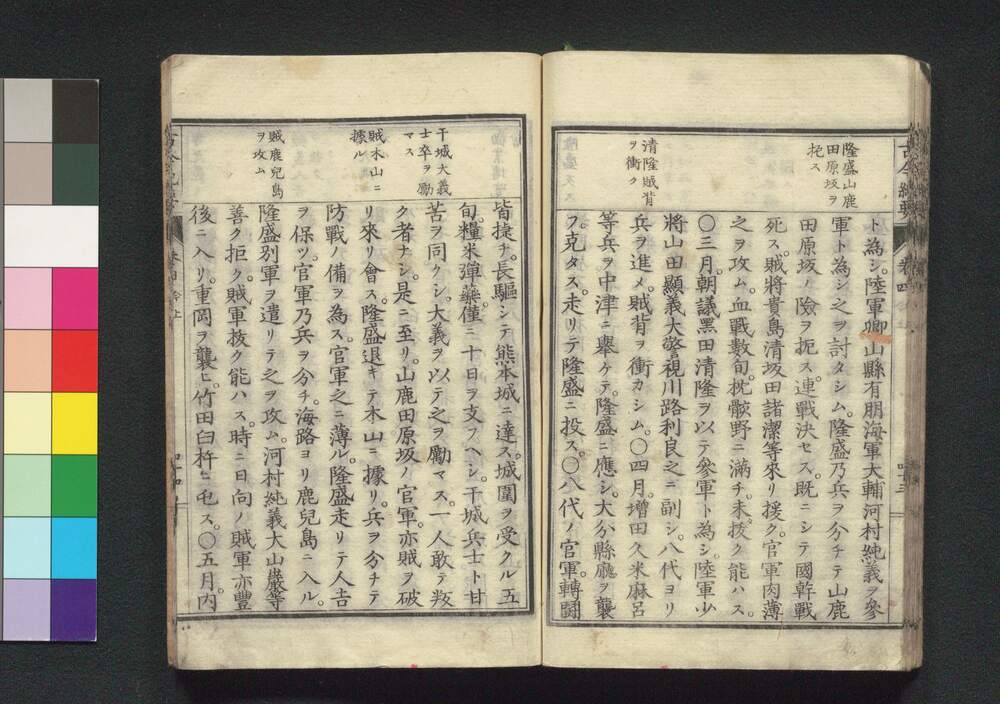 隆盛山鹿
田原坂ヲ
扼ス
清隆賊背
ヲ衝ク
ト為シ。陸軍卿山縣有朋海軍大輔河村純義ヲ參
軍ト為シ之ヲ討タシム。隆盛乃兵ヲ分チテ山鹿
田原坂ノ險ヲ扼ス。連戰決セス。既ニシテ國幹戰
死ス。賊將貴島清坂田諸潔等來リ援ク。官軍肉薄
之ヲ攻ム。血戰數旬。枕骸野ニ滿チ。未拔ク能ハス。
〇三月。朝議黑田清隆ヲ以テ參軍ト為シ。陸軍少
將山田顯義大警視川路利良之ニ副シ。八代ヨリ
兵ヲ進メ。賊背ヲ衝カシム。〇四月。增田久米麻呂
等兵ヲ中津ニ舉ケテ。隆盛ニ應シ。大分縣廳ヲ襲
フ。克タス。走リテ隆盛ニ投ス。〇八代ノ官軍。轉鬪
干城大義
士卒ヲ勵
マス
賊木山ニ
據ル
賊鹿兒島
ヲ攻ム
皆捷チ。長驅シテ熊本城ニ達ス。城圍ヲ受クル五
旬。糧米彈藥。僅ニ十日ヲ支フヘシ。干城兵士ト甘
苦ヲ同クシ。大義ヲ以テ之ヲ勵マス。一人敢テ叛
ク者ナシ。是ニ至リ。山鹿田原坂ノ官軍。亦賊ヲ破
リ來リ會ス。隆盛退キテ木山ニ據リ。兵ヲ分チテ
防戰ノ備ヲ為ス。官軍之ニ薄ル。隆盛走リテ人吉
ヲ保ツ。官軍乃兵ヲ分チ。海路ヨリ鹿兒島ニ入ル。
隆盛別軍ヲ遣リテ之ヲ攻ム。河村純義大山巖等
善ク拒ク。賊軍拔ク能ハス。時ニ日向ノ賊軍亦豐
後ニ入リ。重岡ヲ襲ヒ。竹田臼杵ニ屯ス。〇五月。内